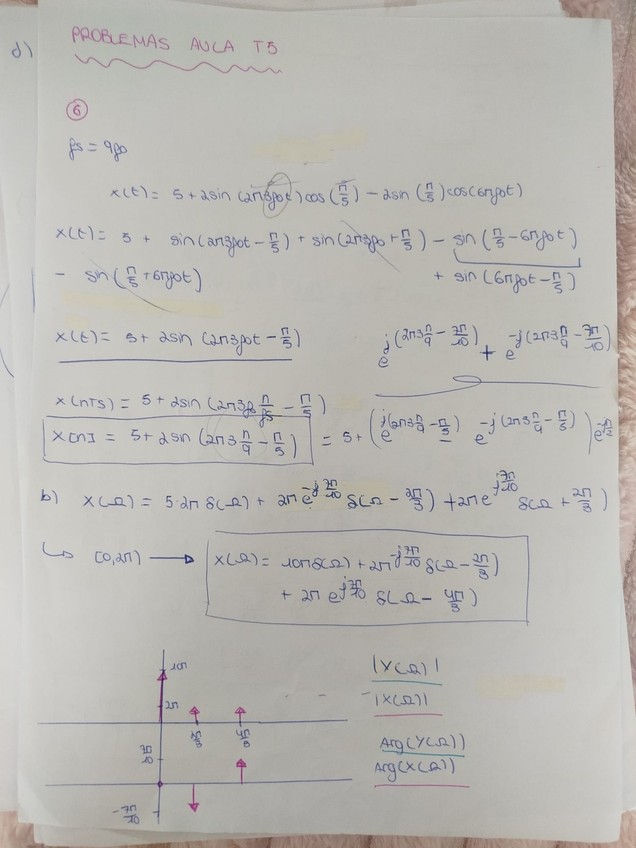 d)
PROBLEMAS AULA T5
6
fs = 9fo
x(t) = 5 + 2sin (2π3fot) cos(π/5) − 2sin (π/5) cos(6πfot)
x(t) = 5 + sin(2π3fot − π/5) + sin(2π3fo + π/5) − sin(π/5 − 6πfot)
− sin(π/5 + 6πfot) + sin(6πfot − π/5)
x(t) = 5 + 2sin (2π3fot − π/5) e^j(2π3 n/9 − 7π/10) + e^−j(2π3 n/9 − 7π/10)
x(nTs) = 5 + 2sin (2π3fo n/fs − π/5)
x[n] = 5 + 2sin (2π3 n/9 − π/5) = 5 + (e^j(2π3 n/9 − π/5) e^−j(2π3 n/9 − π/5))
b) X(Ω) = 5·2π δ(Ω) + 2π e^−j7π/10 δ(Ω − 2π/3) + 2π e^j7π/10 δ(Ω + 2π/3)
↳ [0,2π) → X(Ω) = 10πδ(Ω) + 2π^−j7π/10 δ(Ω − 2π/3)
+ 2π e^j7π/10 δ(Ω − 4π/3)
10π
2π
2π/3 4π/3
|Y(Ω)|
|X(Ω)|
7π/10
−7π/10
Arg(Y(Ω))
Arg(X(Ω))